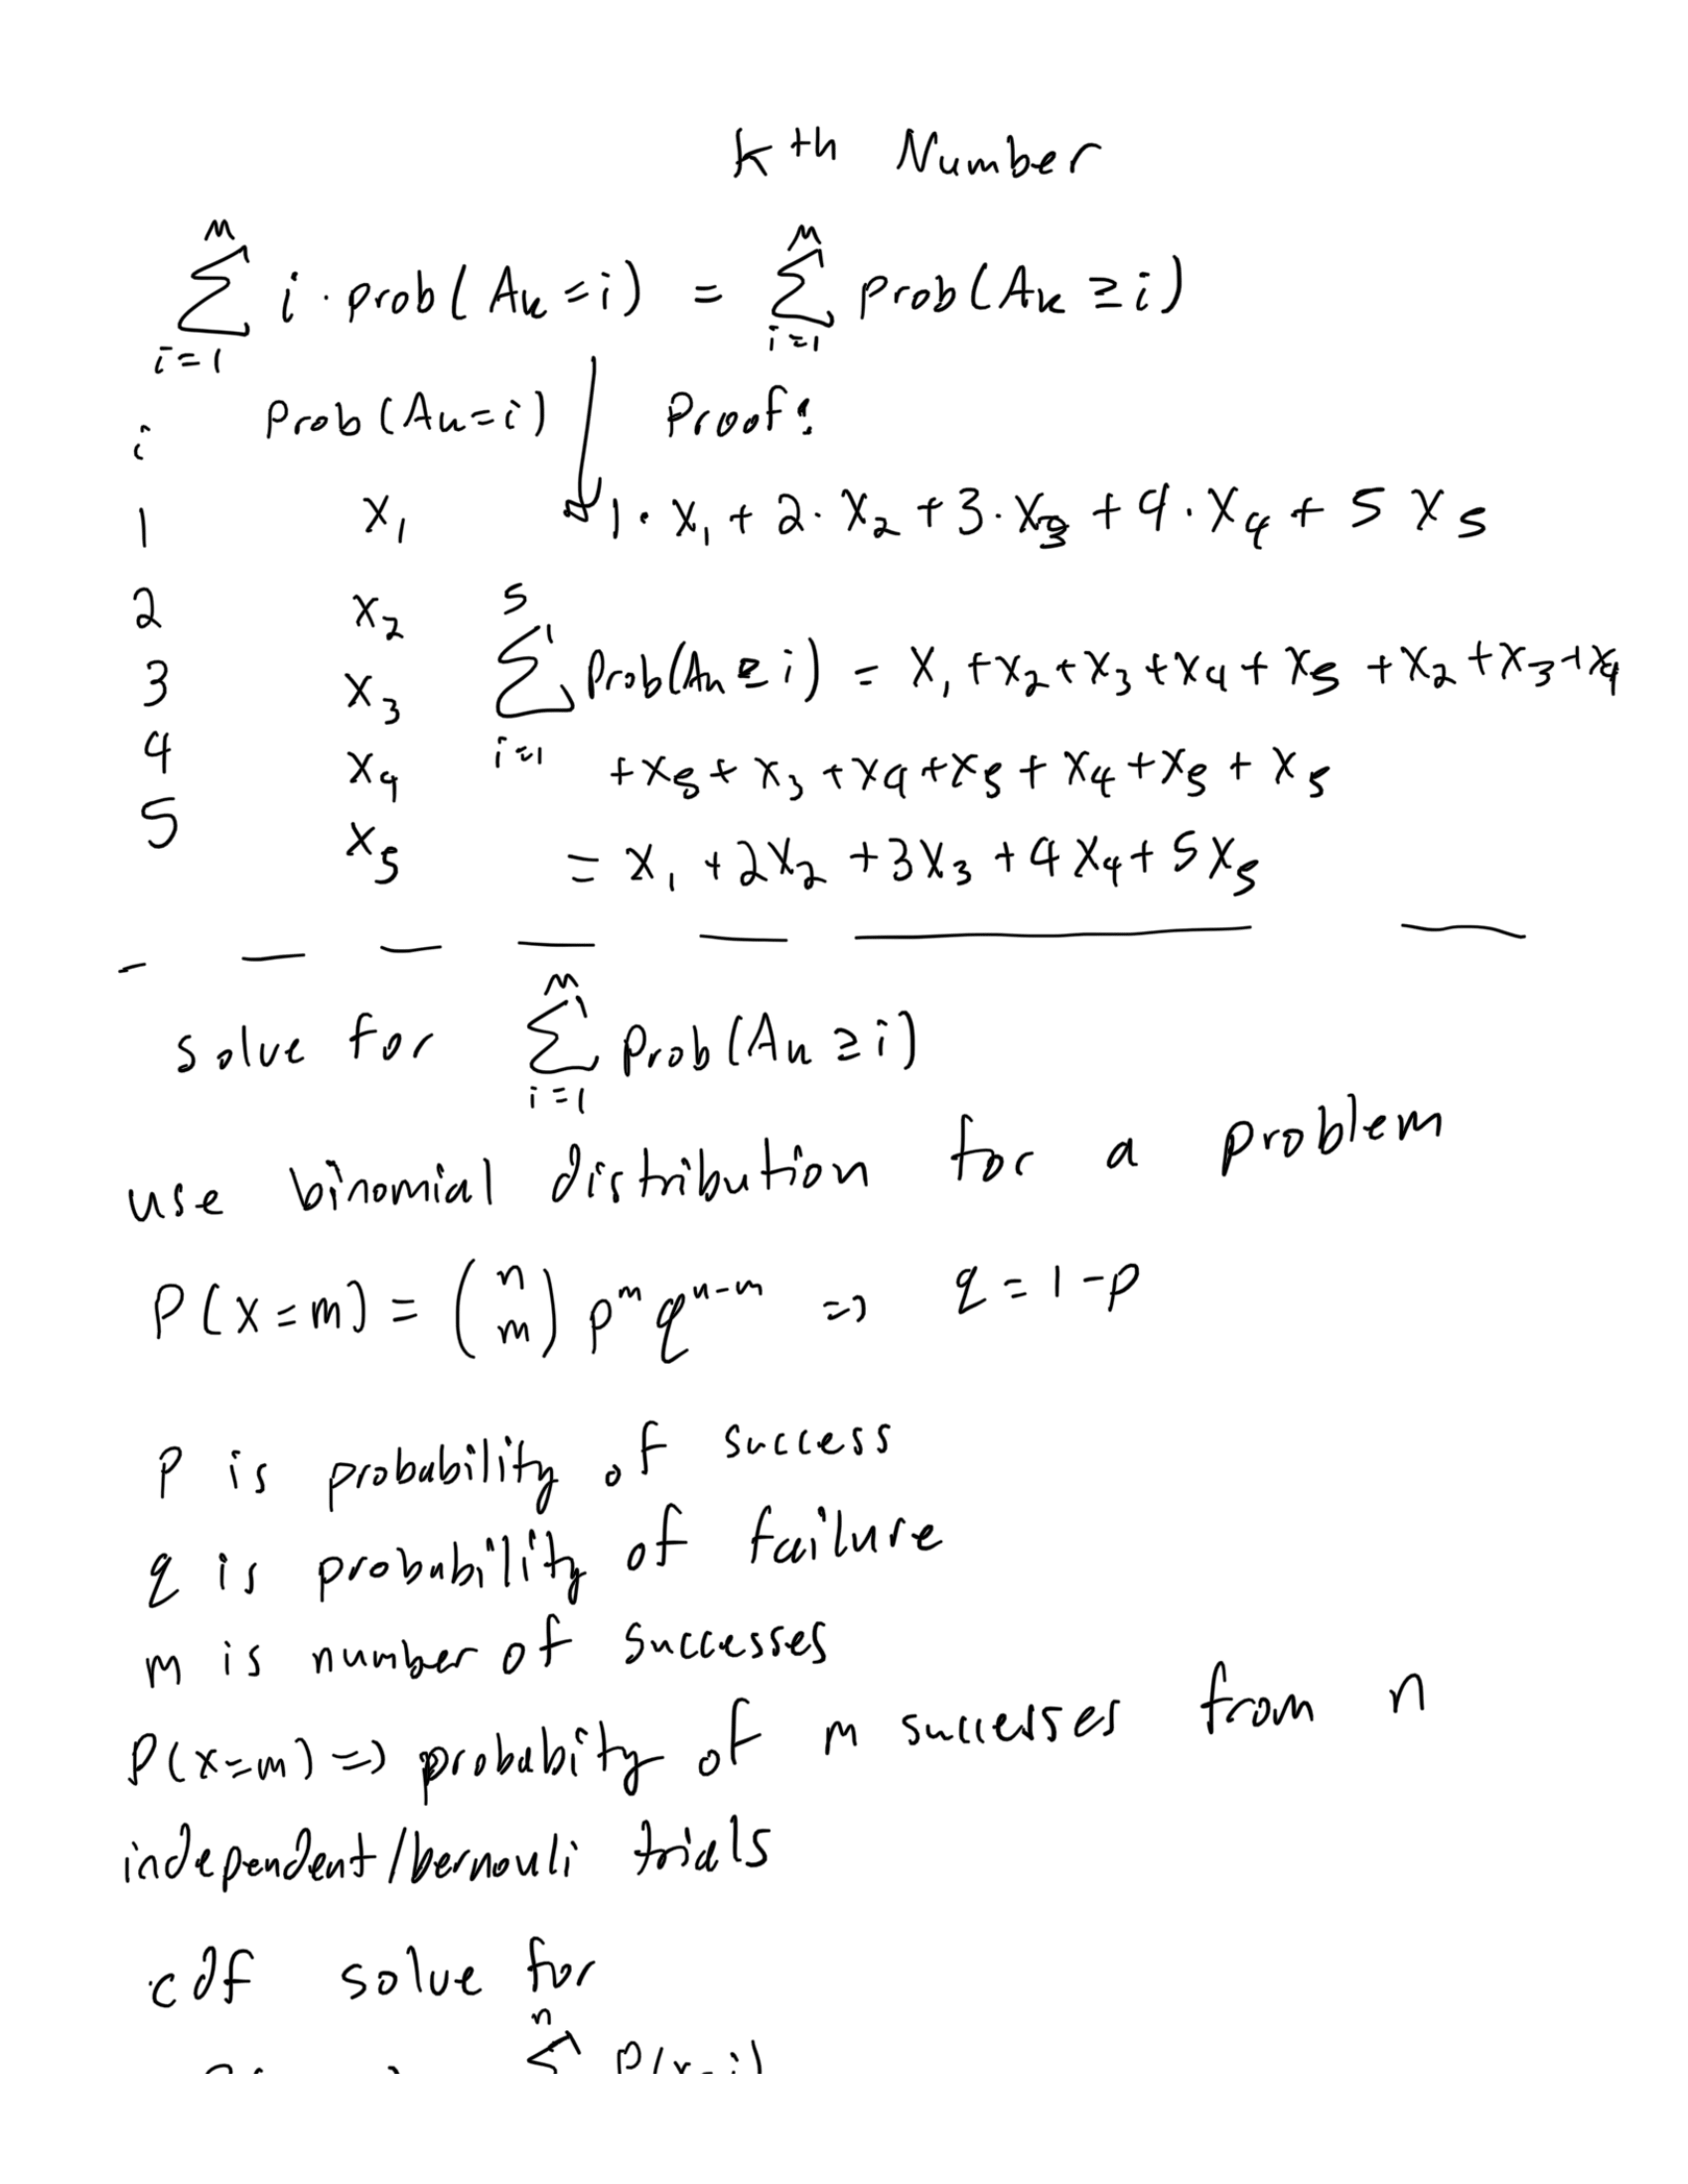 Kth Number
∑_{i=1}^{M} i · prob(A_k = i) = ∑_{i=1}^{M} prob(A_k ≥ i)
i Prob(A_k = i) Proof:
1 x₁ 1·x₁ + 2·x₂ + 3·x₃ + 4·x₄ + 5 x₅
2 x₂
3 x₃ ∑_{i=1}^{5} Prob(A_k ≥ i) = x₁ + x₂ + x₃ + x₄ + x₅ + x₂ + x₃ + x₄
4 x₄ + x₅ + x₃ + x₄ + x₅ + x₄ + x₅ + x₅
5 x₅ = x₁ + 2x₂ + 3x₃ + 4x₄ + 5x₅
solve for ∑_{i=1}^{M} Prob(A_k ≥ i)
use binomial distribution for a problem
P(x=m) = (n m) p^m q^{n-m} => q = 1-p
P is probability of success
q is probability of failure
m is number of successes
P(x=m) => probabity of m successes from n
independent/bernouli trials
cdf solve for